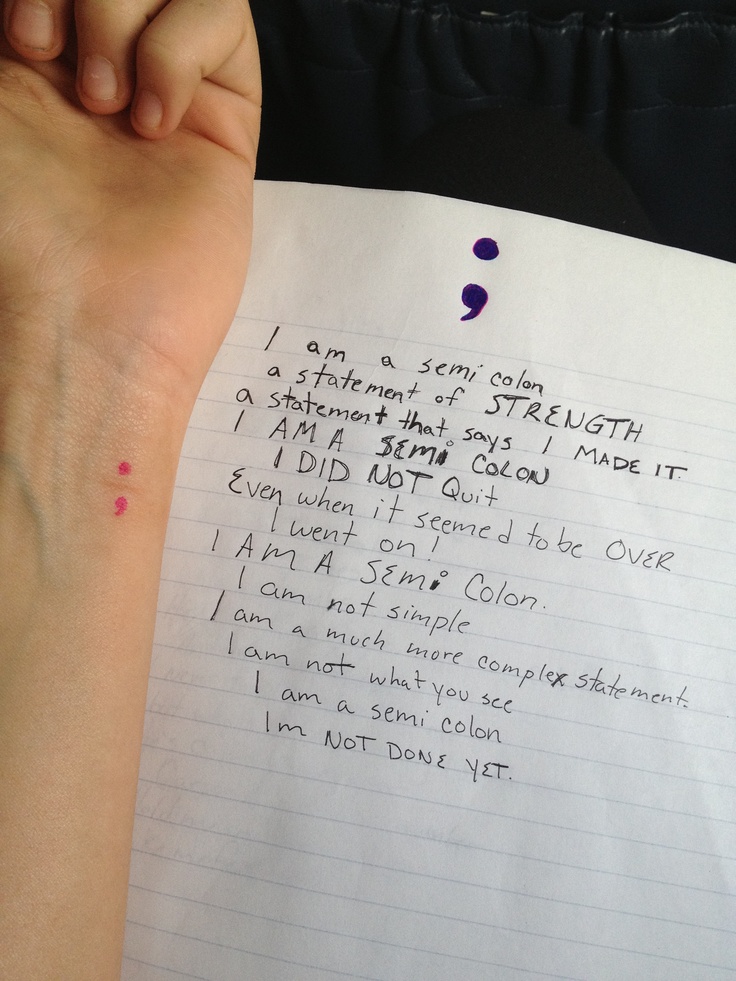 ;
I am a semi colon
a statement of STRENGTH
a statement that says I MADE IT.
I AM A SEMI COLON
I DID NOT Quit
Even when it seemed to be OVER
I went on!
I AM A SEMI Colon.
I am not simple
I am a much more complex statement.
I am not what you see
I am a semi colon
Im NOT DONE YET.
;